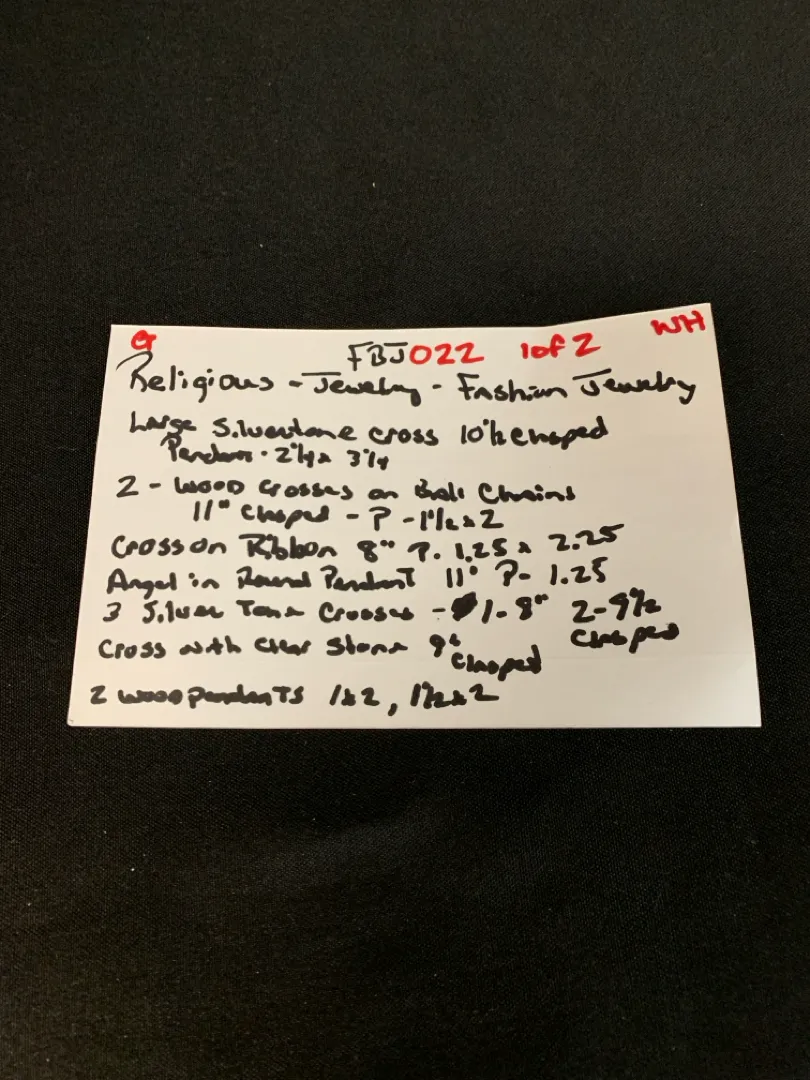 G FBJ022 1 of 2 WH
Religious - Jewelry - Fashion Jewelry
Large Silvertone cross 10"½ Clasped
Pendant - 2¼ x 3¼
2 - Wood Crosses on Ball Chains
11" Clasped - P - 1½ x 2
Cross on Ribbon 8" P. 1.25 x 2.25
Angel in Round Pendant 11" P- 1.25
3 Silver Tone Crosses - 1- 8" 2- 9½
Clasped
Cross with Clear Stone 9"
Clasped
2 wood pendants 1x2, 1½ x 2